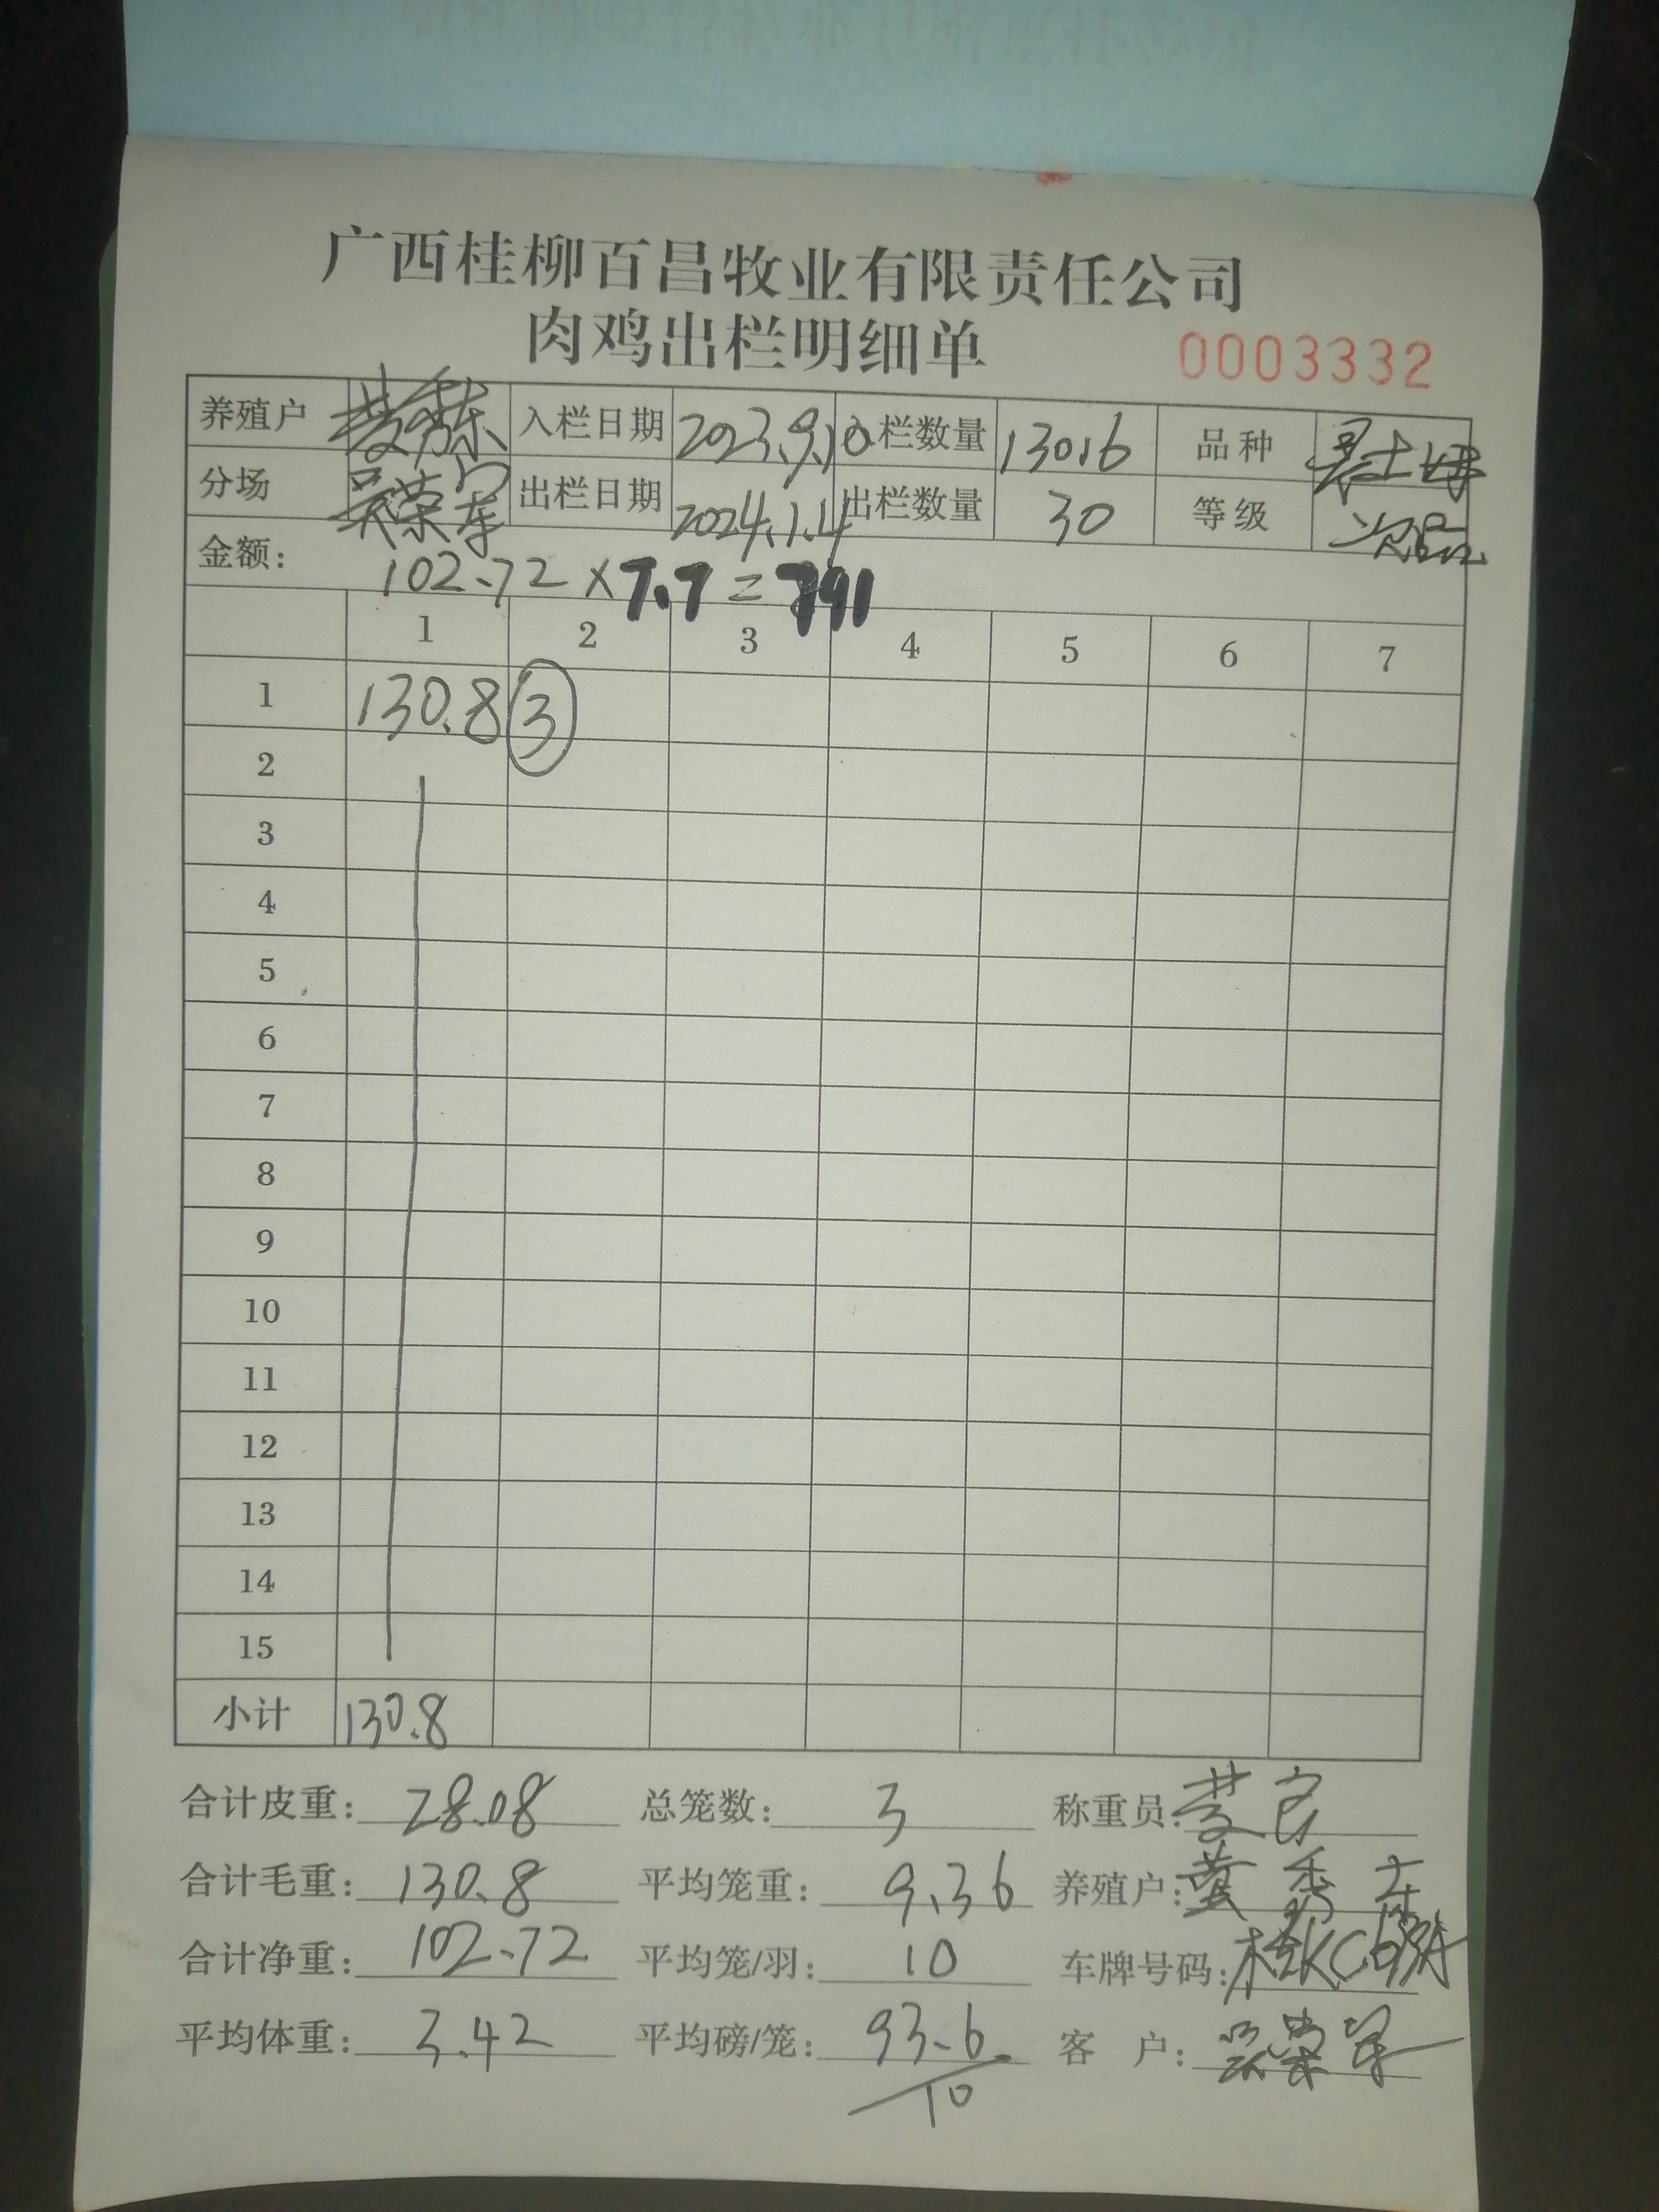 广西桂柳百昌牧业有限责任公司
肉鸡出栏明细单 0003332
养殖户 入栏日期 2023.9.10 入栏数量 13016 品种
分场 吴荣军 出栏日期 2024.1.4 出栏数量 30 等级 次品
金额: 102.72×7.7=791
1 2 3 4 5 6 7
1 130.8 3
2
3
4
5
6
7
8
9
10
11
12
13
14
15
小计 130.8
合计皮重: 28.08 总笼数: 3 称重员:
合计毛重: 130.8 平均笼重: 9.36 养殖户: 黄秀东
合计净重: 102.72 平均笼/羽: 10 车牌号码:
平均体重: 3.42 平均磅/笼: 93.6 客 户: 吴荣军
10